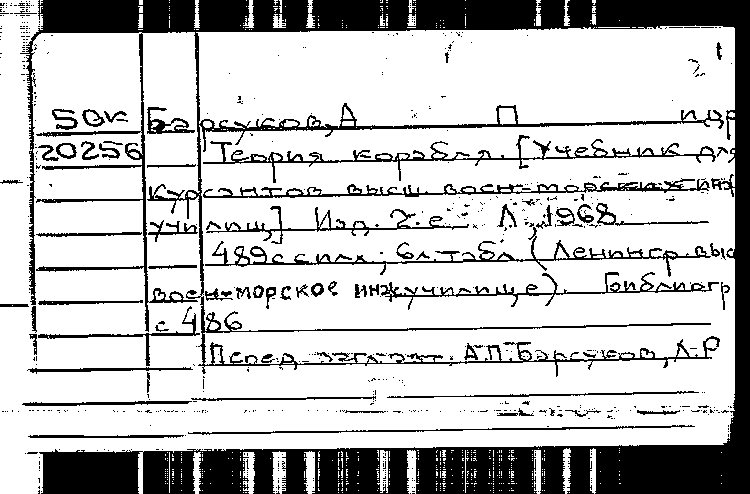 1
50к Барсуков, А П и др
20256 Теория корабля. [Учебник для
курсантов высш. воен-морских инж
училищ] Изд. 2-е Л, 1968.
489с с илл; 6л. табл (Ленингр. выс
воен-морское инж училище). Библиогр
с 486
Перед загл авт. А.П. Барсуков, Л-Р